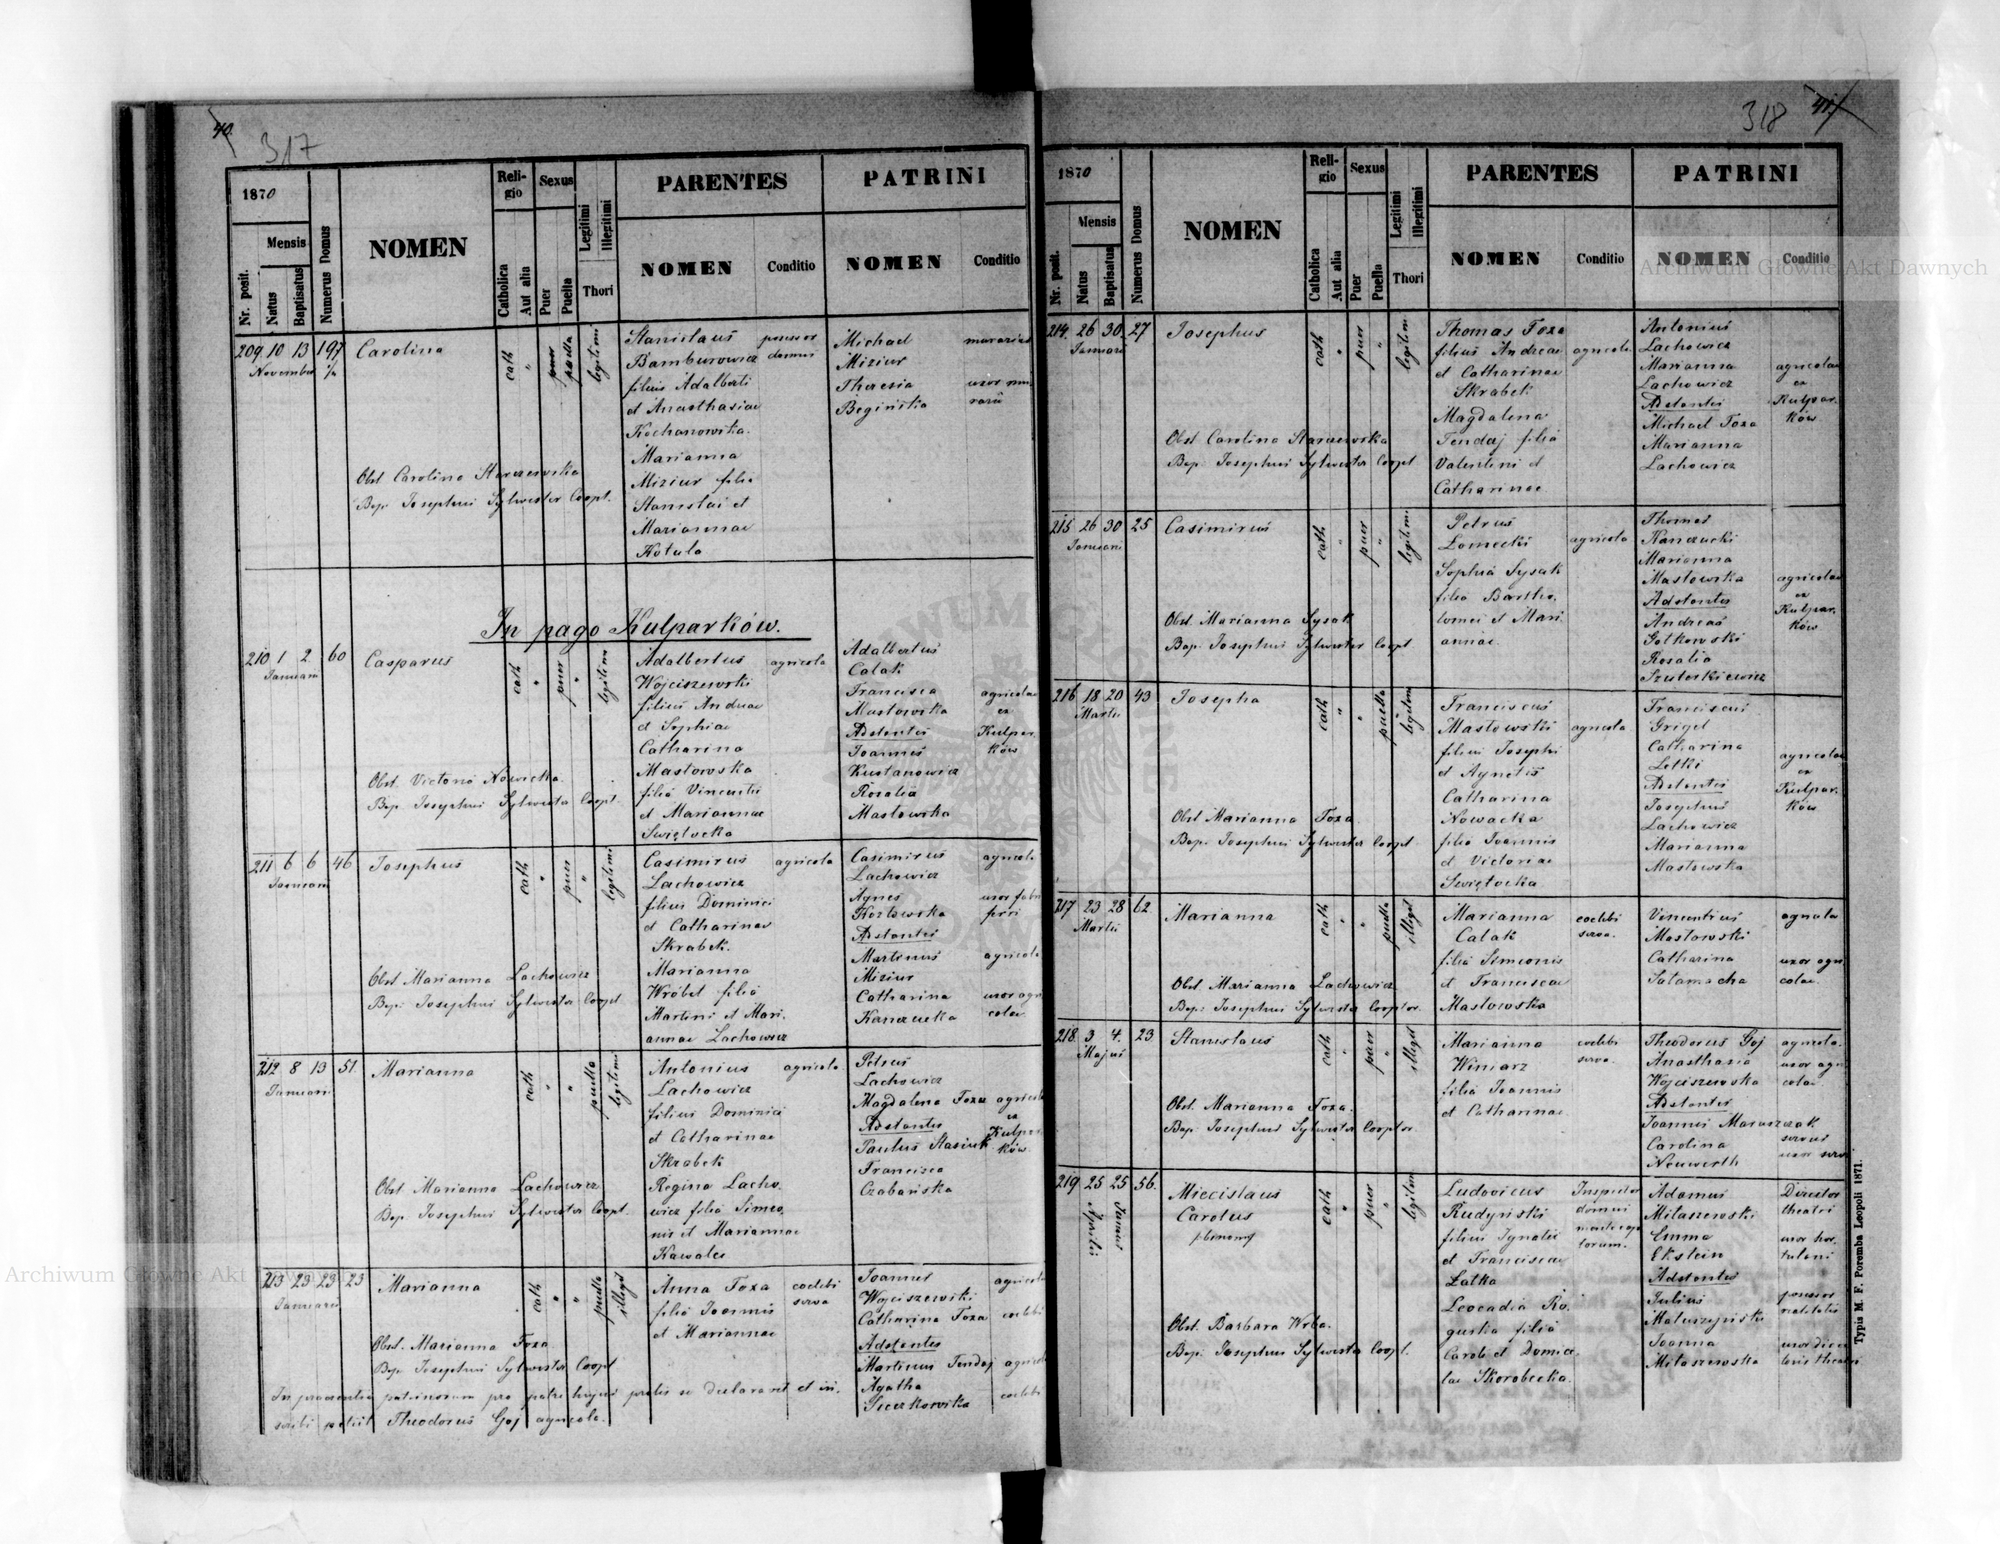 40.
317
1870
Nr. posit.
Mensis
Natus
Baptisatus
Numerus Domus
NOMEN
Religio
Catholica
Aut alia
Sexus
Puer
Puella
Legitimi
Illegitimi
Thori
PARENTES
NOMEN
Conditio
PATRINI
NOMEN
Conditio
209 10 13 197
November
Carolina
cath
puella
legitimi
Stanislaus
Bamburowicz
filius Adalberti
et Anasthasiae
Kochanowska.
Marianna
Miziur filia
Stanislai et
Mariannae
Kotula
possor
domus
Michael
Miziur
Theresia
Begińska
murarius
uxor mu
rarii
Obst Carolina Starzewska
Bap. Josephus Sylwester Coopt.
In pago Kulparków.
210 1 2 60
Januarii
Casparus
cath
puer
legitimi
Adalbertus
Wojciszewski
filius Andreae
et Sophiae
Catharina
Masłowska
filia Vincentii
et Mariannae
Swiętocka
agricola
Adalbertus
Całak
Francisca
Masłowska
Adstantes
Joannes
Kustanowicz
Rosalia
Masłowska
agricolae
ex
Kulpar
ków
Obst. Victoria Nowicka.
Bap. Josephus Sylwester Coopt.
211 6 6 46
Januarii
Josephus
cath
puer
legitimi
Casimirus
Lachowicz
filius Dominici
et Catharinae
Skrabek.
Marianna
Wróbel filia
Martini et Mari.
annae Lachowicz
agricola
Casimirus
Lachowicz
Agnes
Kozłowska
Adstantes
Martinus
Miziur
Catharina
Kanczucka
agricola
uxor fabri
ferri
agricola
uxor agri
colae
Obst Marianna Lachowicz
Bap. Josephus Sylwester Coopt.
212 8 13 51.
Januarii
Marianna
cath
puella
legitimi
Antonius
Lachowicz
filius Dominici
et Catharinae
Skrabek
Regina Lacho.
wicz filia Simeo
nis et Mariannae
Kawalec
agricola.
Petrus
Lachowicz
Magdalena Foza
Adstantes
Paulus Stasiuk
Francisca
Czabańska
agricolae
ex
Kulpar
ków
Obst Marianna Lachowicz
Bap. Josephus Sylwester Coopt.
213 23 23 23
Januarii
Marianna
cath
puella
illegit
Anna Foza
filia Joannis
et Mariannae
coelebs
serva
Joannes
Wojciszewski
Catharina Foza
Adstantes
Martinus Tendaj
Agatha
Sieczkowska
agricola
coelebs
agricola
coelebs
Obst. Marianna Foza
Bap Josephus Sylwester Coopt
In praesentia patrinorum pro patre hujus prolis se declaravit et in.
scribi petiit Theodorus Goj agricola.
318
41.
1870
Nr. posit.
Mensis
Natus
Baptisatus
Numerus Domus
NOMEN
Religio
Catholica
Aut alia
Sexus
Puer
Puella
Legitimi
Illegitimi
Thori
PARENTES
NOMEN
Conditio
PATRINI
NOMEN
Conditio
214. 26 30. 27
Januarii
Josephus
cath
puer
legitimi
Thomas Foza
filius Andreae
et Catharinae
Skrabek
Magdalena
Tendaj filia
Valentini et
Catharinae
agricola
Antonius
Lachowicz
Marianna
Lachowicz
Adstantes
Michael Foza
Marianna
Lachowicz
agricolae
ex
Kulpar.
ków
Obst Carolina Starzewska
Bap. Josephus Sylwester Coopt
215 26 30 25
Januarii
Casimirus
cath
puer
legitimi
Petrus
Łomecki
Sophia Sysak
filia Bartho.
lomei et Mari
annae.
agricola
Thomas
Kanczucki
Marianna
Masłowska
Adstantes
Andreas
Gołkowski
Rosalia
Szutorkiewicz
agricolae
ex
Kulpar
ków
Obst. Marianna Sysak.
Bap. Josephus Sylwester Coopt
216 18 20 43
Martii
Josepha
cath
puella
legitimi
Franciscus
Masłowski
filius Josephi
et Agnetis
Catharina
Nowacka
filia Joannis
et Victoriae
Swiętocka
agricola
Franciscus
Grigel
Catharina
Letki
Adstantes
Josephus
Lachowicz
Marianna
Masłowska
agricolae
ex
Kulpar.
ków
Obst Marianna Foza.
Bap. Josephus Sylwester Coopt.
217 23 28 62
Martii
Marianna
cath
puella
illegit
Marianna
Całak
filia Simeonis
et Franciscae
Masłowska
coelebs
serva.
Vincentius
Masłowski
Catharina
Sałamacha
agricola
uxor agri
colae.
Obst. Marianna Lachowicz
Bap: Josephus Sylwester Cooptor.
218. 3 4. 23
Majus
Stanislaus
cath
puer
illegit
Marianna
Winiarz
filia Joannis
et Catharinae
coelebs
serva.
Theodorus Goj
Anasthasia
Wojciszewska
Adstantes
Joannes Maruszczak
Carolina
Neuwerth
agricola.
uxor agri
colae.
servus
uxor servi
Obst. Marianna Foza.
Bap. Josephus Sylwester Cooptor
219 25 25 56.
Aprilis
Junius
Miecislaus
Carolus
cath
puer
legitimi
Ludovicus
Rudyński
filius Ignatii
et Franciscae
Łatka
Leocadia Ro.
guska filia
Caroli et Domice
lae Skorobecka.
Inspector
domus
mentecap
torum.
Adamus
Miłaszewski
Emma
Ekstein
Adstantes
Julius
Matuszyński
Joanna
Miłaszewska
Director
theatri
uxor hor
tulani
possor
realitatis
uxor direc
toris theatri
Obst. Barbara Wrba.
Bap. Josephus Sylwester Coopt.
Typis M. F. Poremba Leopoli 1871.
Archiwum Główne Akt Dawnych
Archiwum Główne Akt Dawnych